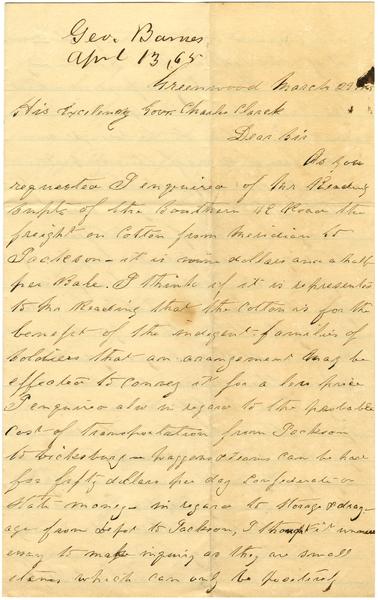 Geo. Barnes
April 13, 65
Greenwood March 29
His Excellency Govr Charles Clark
Dear Sir
As you
requested I enquired of Mr Reading
Supt of the Southern R Road the
freight on Cotton from Meridian to
Jackson - it is nine dollars and a half
per Bale. I think if it is represented
to Mr Reading that the Cotton is for the
benefit of the indigent families of
Soldiers that an arrangement may be
effected to convey it for a less price
I enquired also in regard to the probable
cost of transportation from Jackson
to Vicksburg - waggons & teams can be had
for fifty dollars per day Confederate or
State money - in regard to Storage & dray-
age from depot to Jackson, I thought it unnec
essary to make inquiry as they are small
items which can only be positively